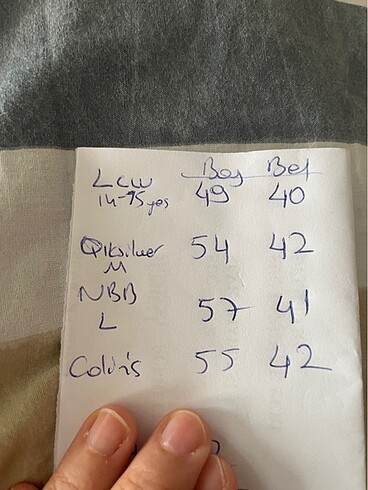 Lcw Boy Bel
14-15 yaş 49 40
Qıksilver 54 42
M
NBB 57 41
L
Colin's 55 42